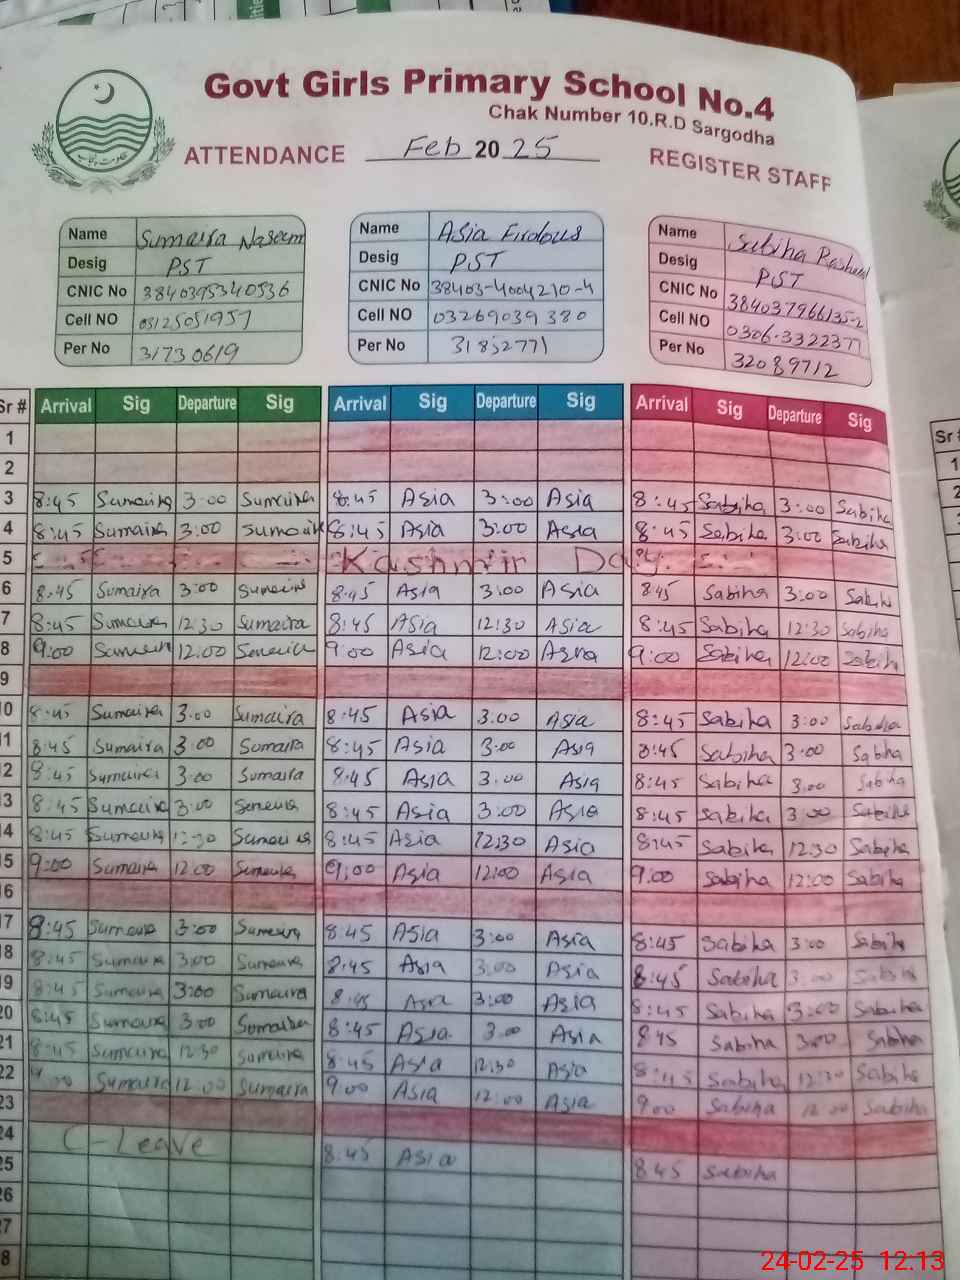 Govt Girls Primary School No.4
Chak Number 10.R.D Sargodha
ATTENDANCE Feb 20 25 REGISTER STAFF
Name Sumaira Naseem Name Asia Firdous Name Sabiha Rasheed
Desig PST Desig PST Desig PST
CNIC No 3840395340536 CNIC No 38403-4004210-4 CNIC No 3840379661352
Cell NO 03125051957 Cell NO 03269039380 Cell NO 0306-3322377
Per No 31730619 Per No 31852771 Per No 32089712
Sr # Arrival Sig Departure Sig Arrival Sig Departure Sig Arrival Sig Departure Sig
1
2
3 8:45 Sumaira 3:00 Sumaira 8:45 Asia 3:00 Asia 8:45 Sabiha 3:00 Sabiha
4 8:45 Sumaira 3:00 Sumaira 8:45 Asia 3:00 Asia 8:45 Sabiha 3:00 Sabiha
5 Kashmir Day
6 8:45 Sumaira 3:00 Sumaira 8:45 Asia 3:00 Asia 8:45 Sabiha 3:00 Sabiha
7 8:45 Sumaira 12:30 Sumaira 8:45 Asia 12:30 Asia 8:45 Sabiha 12:30 Sabiha
8 9:00 Sumaira 12:00 Sumaira 9:00 Asia 12:00 Asia 9:00 Sabiha 12:00 Sabiha
9
10 8:45 Sumaira 3:00 Sumaira 8:45 Asia 3:00 Asia 8:45 Sabiha 3:00 Sabiha
11 8:45 Sumaira 3:00 Sumaira 8:45 Asia 3:00 Asia 8:45 Sabiha 3:00 Sabiha
12 8:45 Sumaira 3:00 Sumaira 8:45 Asia 3:00 Asia 8:45 Sabiha 3:00 Sabiha
13 8:45 Sumaira 3:00 Sumaira 8:45 Asia 3:00 Asia 8:45 Sabiha 3:00 Sabiha
14 8:45 Sumaira 12:30 Sumaira 8:45 Asia 12:30 Asia 8:45 Sabiha 12:30 Sabiha
15 9:00 Sumaira 12:00 Sumaira 9:00 Asia 12:00 Asia 9:00 Sabiha 12:00 Sabiha
16
17 8:45 Sumaira 3:00 Sumaira 8:45 Asia 3:00 Asia 8:45 Sabiha 3:00 Sabiha
18 8:45 Sumaira 3:00 Sumaira 8:45 Asia 3:00 Asia 8:45 Sabiha 3:00 Sabiha
19 8:45 Sumaira 3:00 Sumaira 8:45 Asia 3:00 Asia 8:45 Sabiha 3:00 Sabiha
20 8:45 Sumaira 3:00 Sumaira 8:45 Asia 3:00 Asia 8:45 Sabiha 3:00 Sabiha
21 8:45 Sumaira 12:30 Sumaira 8:45 Asia 12:30 Asia 8:45 Sabiha 12:30 Sabiha
22 9:00 Sumaira 12:00 Sumaira 9:00 Asia 12:00 Asia 9:00 Sabiha 12:00 Sabiha
23
24 C-Leave 8:45 Asia 8:45 Sabiha
25
26
27
8
24-02-25 12:13